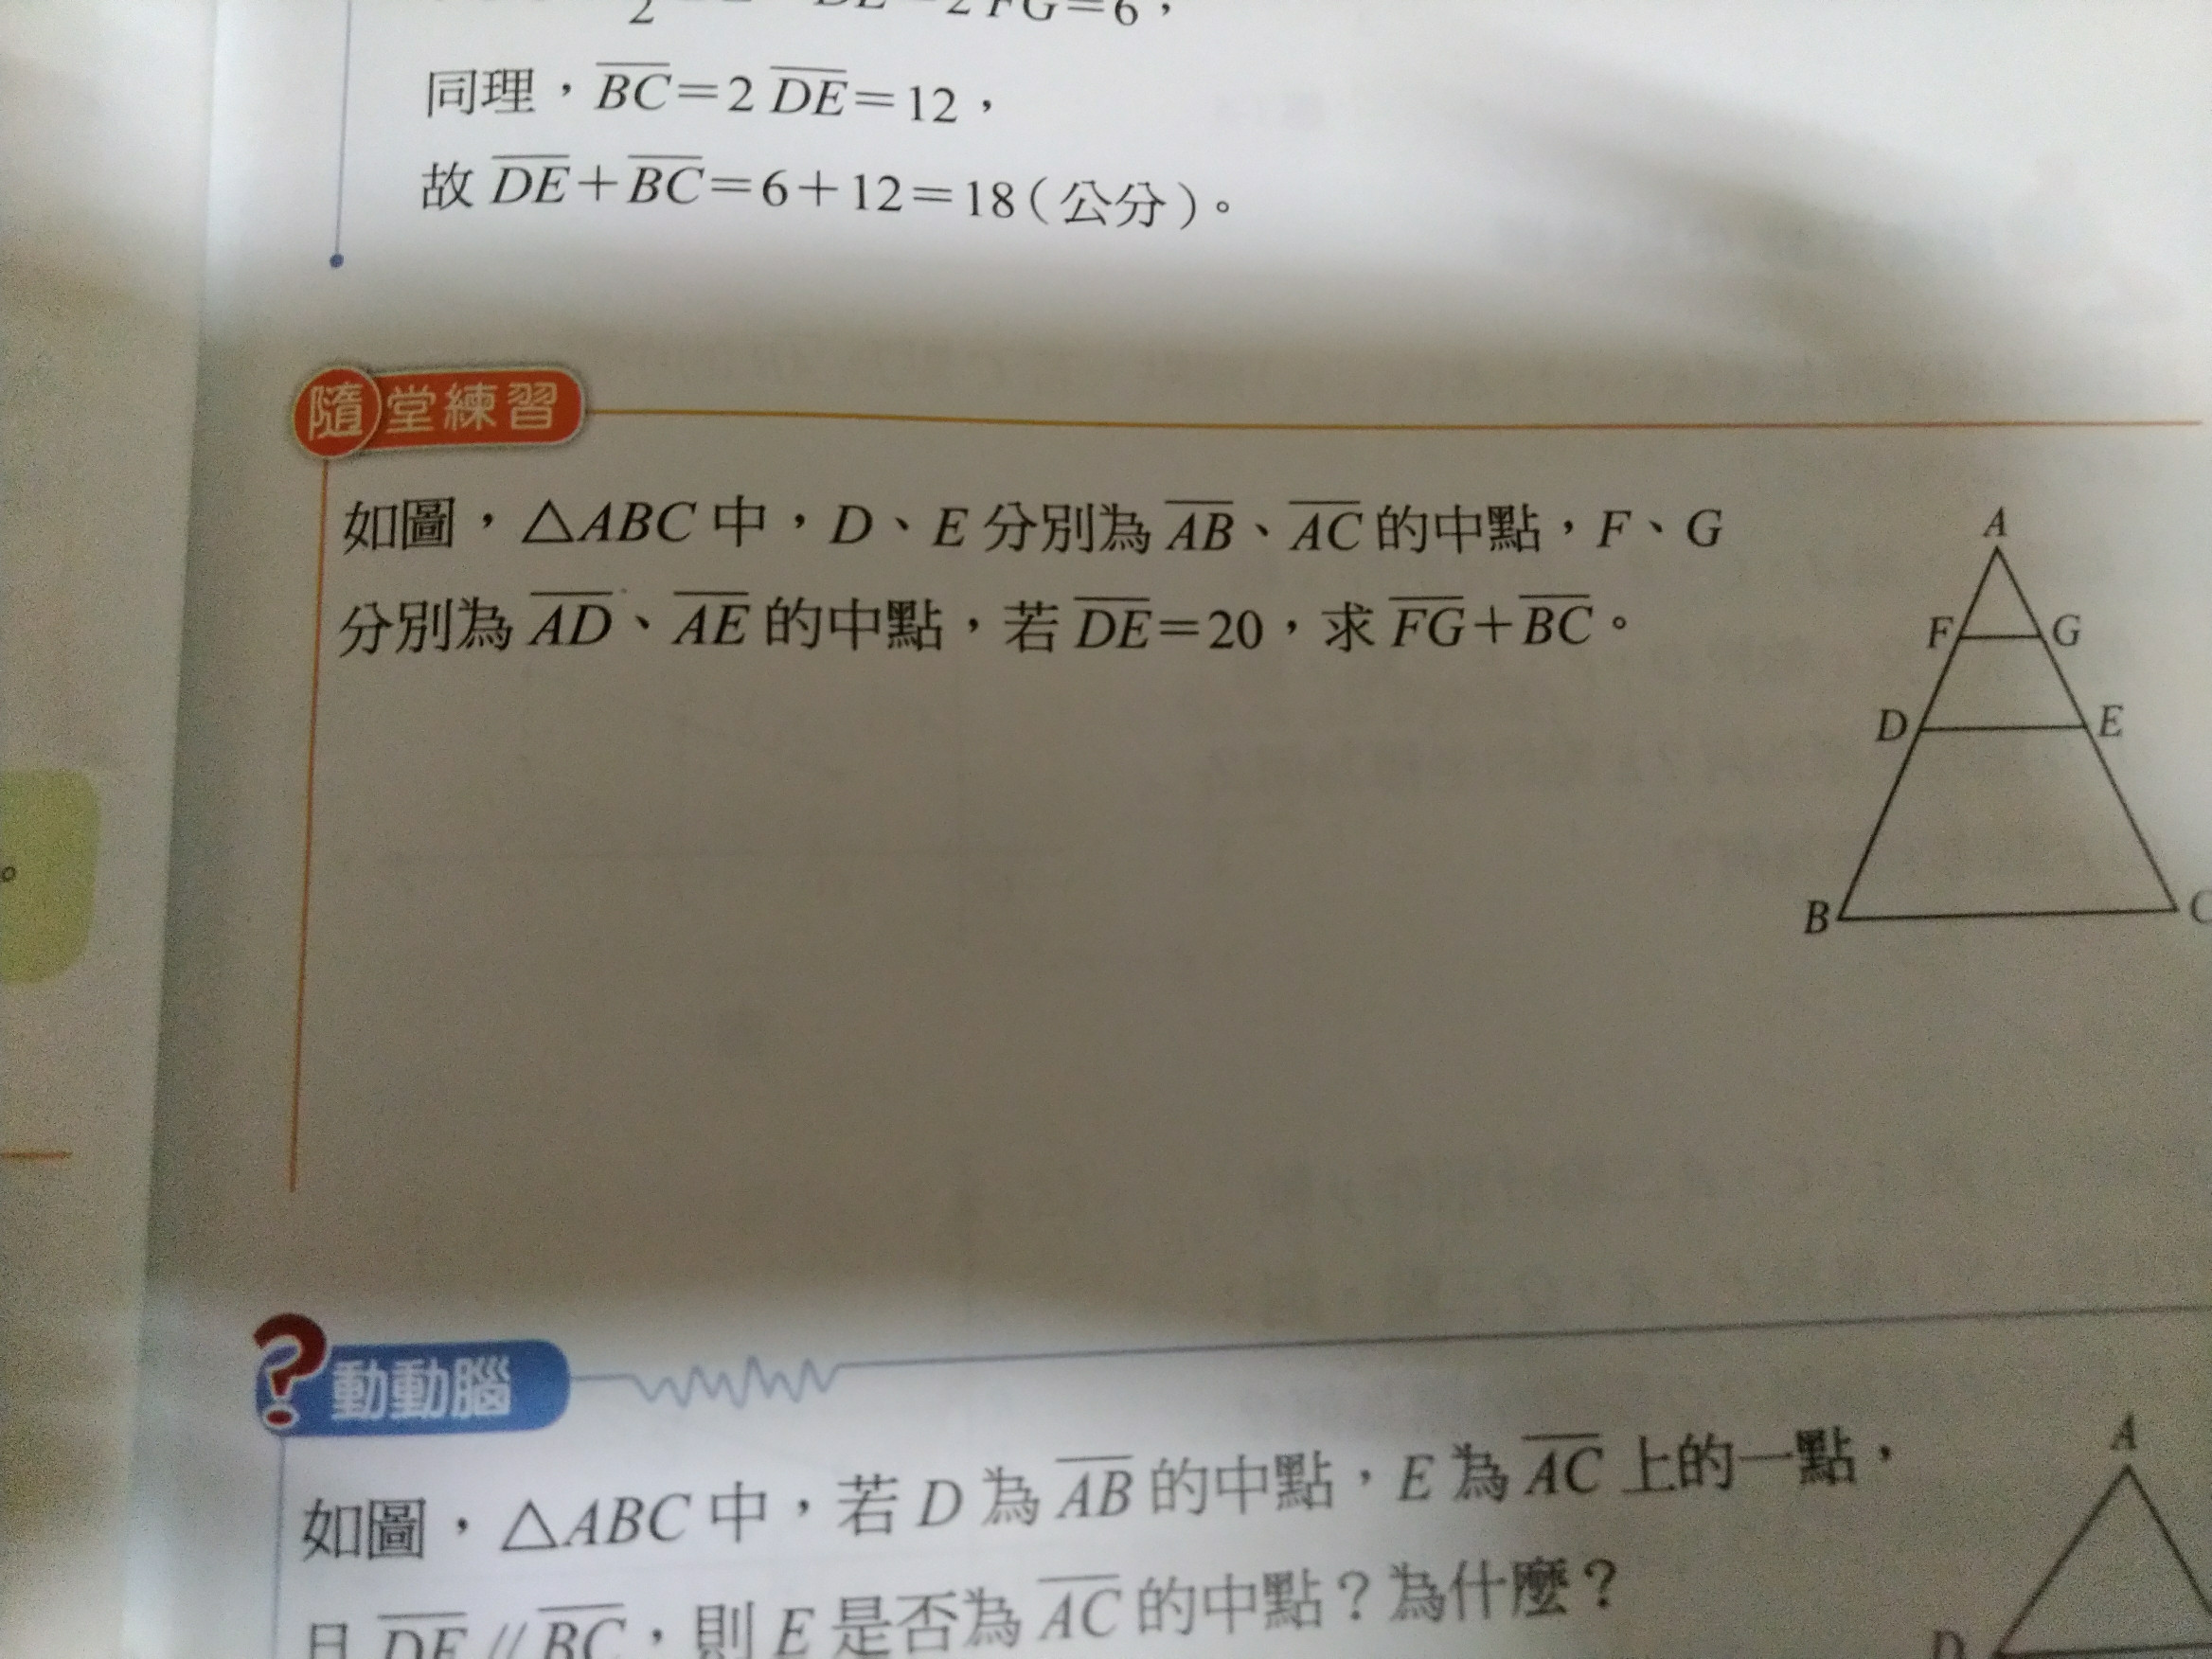 2 FG=6，
同理，BC=2 DE=12，
故 DE+BC=6+12=18(公分)。
隨堂練習
如圖，△ABC 中，D、E 分別為 AB、AC 的中點，F、G
分別為 AD、AE 的中點，若 DE=20，求 FG+BC。
A
F G
D E
B C
?動動腦
如圖，△ABC 中，若 D 為 AB 的中點，E 為 AC 上的一點，
且 DE // BC，則 E 是否為 AC 的中點？為什麼？
A
D